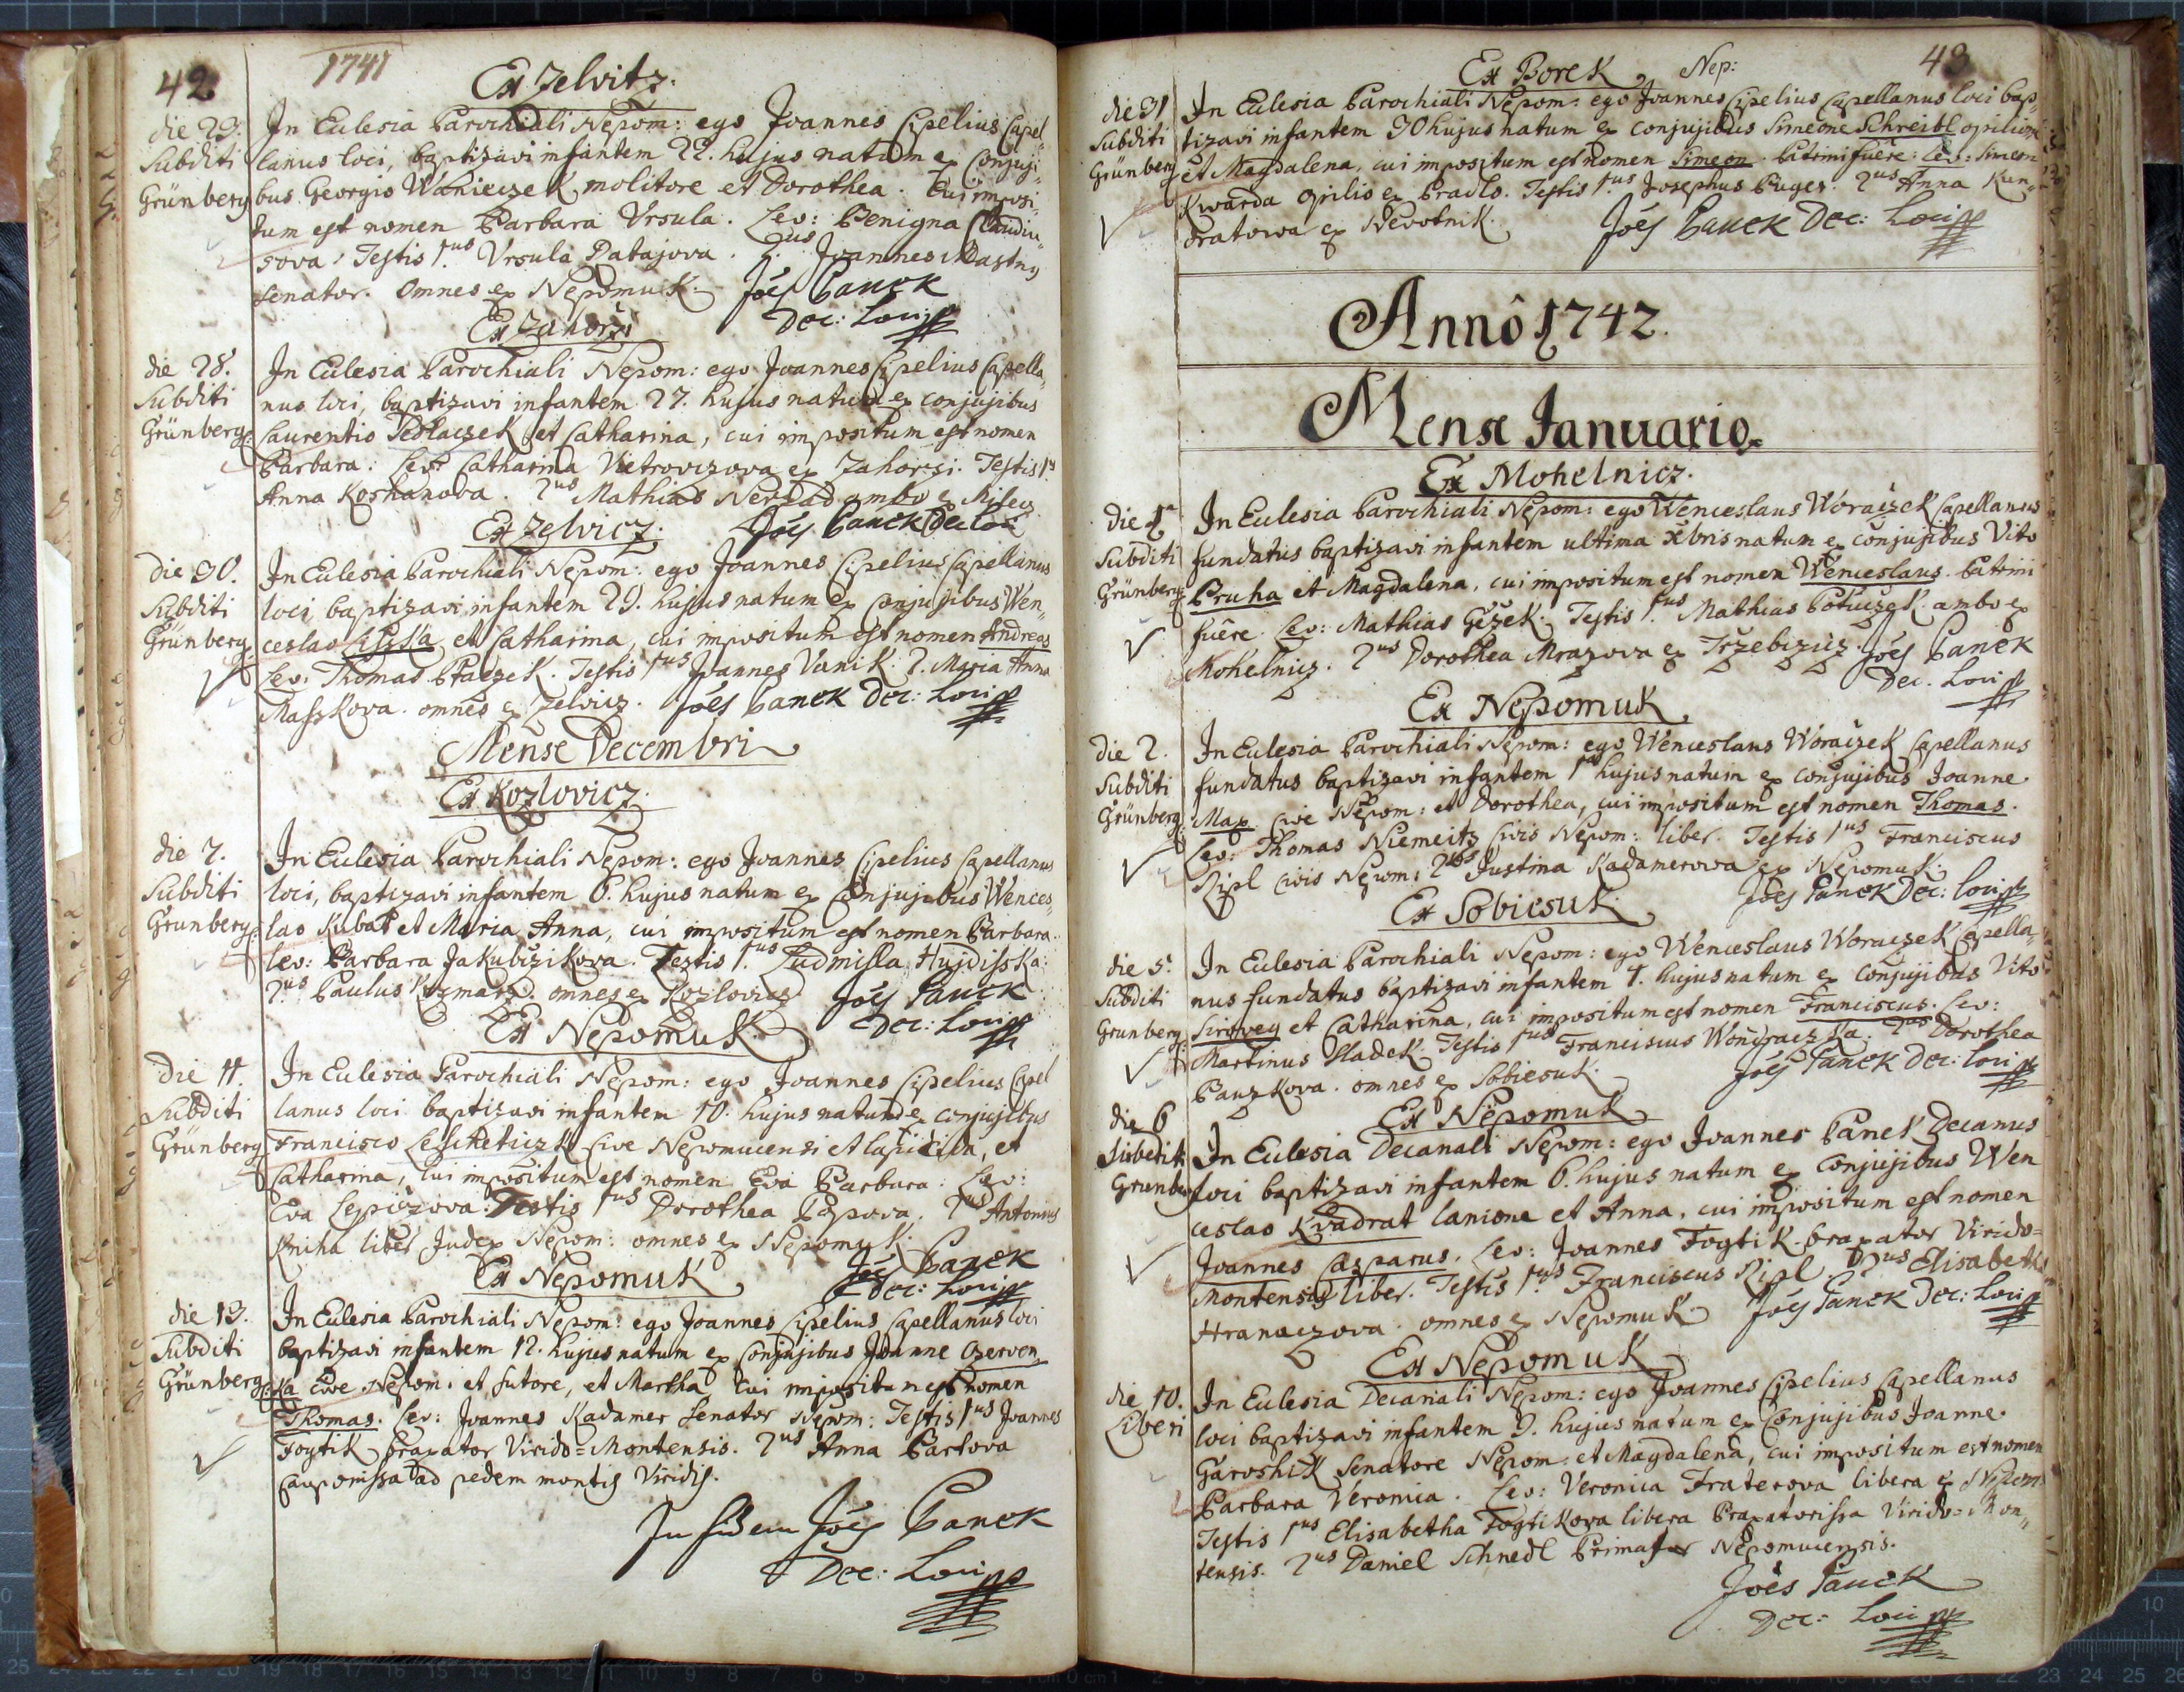 42.
1741
Ex Zelvitz.
die 23.
Subditi
Grünberg
In Eulesia Parochiali Nepom: ego Joannes Cipelius Capel-
lanus loci, baptizavi infantem 22. hujus natum ex Conjuji-
bus Georgio Wanieczek molitore et Dorothea. Cui imposi-
tum est nomen Barbara Ursula. Lev: Benigna
Testis 1.us Ursula Datajova. 2.us Joannes Mastny
Senator. Omnes ex Nepomuk. Joës Panek
Dec: Loci
Ex Zahorzi
die 28.
Subditi
Grünberg:
In Eulesia Parochiali Nepom: ego Joannes Cipelius Capella-
nus loci, baptizavi infantem 27. hujus natum ex conjujibus
Laurentio Sedlaczek et Catharina, cui impositum est nomen
Barbara: Lev: Catharina Vietrovczova ex Zahorzi. Testis 1.us
Anna Koshanova. 2.us Mathias ambo ex
Joës Panek Dec: Loci
Ex Zelvicz.
die 30.
Subditi
Grünberg
In Eulesia Parochiali Nepom: ego Joannes Cipelius Capellanus
loci, baptizavi infantem 29. hujus natum ex Conjujibus Wen-
ceslao et Catharina, cui impositum est nomen Andreas
Lev: Thomas Ptaczek. Testis 1.us Joannes Vanik. 2. Maria Anna
Masskova. omnes ex Zelvicz. Joës Panek Dec: Loci
Mense Decembri
Ex Kozlovicz.
die 7.
Subditi
Grunberg:
In Eulesia Parochiali Nepom: ego Joannes Cipelius Capellanus
loci, baptizavi infantem 6. hujus natum ex Conjujibus Wences-
lao Kubat et Maria Anna, cui impositum est nomen Barbara.
lev: Barbara Jakubczikova. Testis 1.us Ludmilla Hujdisska:
2.us Paulus omnes ex Kozlovicz Joës Panek
Dec: Loci
Ex Nepomuk.
die 11.
Subditi
Grünberg
In Eulesia Parochiali Nepom: ego Joannes Cipelius Capel
lanus loci baptizavi infantem 10. hujus natum ex conjujibus
Francisco Cive Nepomucensi et et
Catharina, cui impositum est nomen Eva Barbara. Lev:
Eva Testis 1.us Dorothea Popova. 2.us Antonius
Kniha liber Judex Nepom: omnes ex Nepomuk.
Joës Panek
Dec: Loci
Ex Nepomuk
die 13.
Subditi
Grünberg:
In Eulesia Parochiali Nepom: ego Joannes Cipelius Capellanus loci
baptizavi infantem 12. hujus natum ex Conjujibus Joanne Czerven-
ka Cive Nepom: et sutore, et Martha, cui impositum est nomen
Thomas. Lev: Joannes Kadamer Senator Nepom: Testis 1.us Joannes
Fogtik braxator Virido=Montensis. 2.us Anna Bartova
Cauponissa ad pedem montis Viridis.
In fidem Joës Panek
Dec: Loci
43
Ex Borek Nep:
die 31
Subditi
Grünberg
In Eulesia Parochiali Nepom: ego Joannes Cipelius Capellanus loci bap-
tizavi infantem 30 hujus natum ex conjujibus Simeone Schreibl opilione
et Magdalena, cui impositum est nomen Simeon. Patrini fuêre: Lev: Simeon
Kwarda opilio ex Pradlo. Testis 1.us Josephus Puger. 2.us Anna Kun-
Joës Panek Dec: Loci
Annô 1742.
Mense Januario.
Ex Mohelnicz.
die 1a
Subditi
Grünberg:
In Eulesia Parochiali Nepom: ego Wenceslaus Woraczek Capellanus
fundatus baptizavi infantem ultima xbris natum ex conjujibus Vito
Pruha et Magdalena, cui impositum est nomen Wenceslaus. Patrini
fuêre. Lev: Mathias Gezek. Testis 1.us Mathias ambo ex
Mohelnicz. 2.us Dorothea Mrazova ex Trzebczicz. Joës Panek
Dec. Loci
Ex Nepomuk
die 2.
Subditi
Grünberg:
In Eulesia Parochiali Nepom: ego Wenceslaus Woraczek Capellanus
fundatus baptizavi infantem 1a hujus natum ex conjujibus Joanne
Max Cive Nepom: et Dorothea, cui impositum est nomen Thomas.
Lev: Thomas Niemeitz Civis Nepom: liber. Testis 1.us Franciscus
Ripl civis Nepom: 2.us Justina Kadamerowa ex Nepomuk.
Joës Panek Dec: loci
Ex Sobiesuk.
die 5.
Subditi
Grunberg:
In Eulesia Parochiali Nepom: ego Wenceslaus Woraczek Capella-
nus fundatus baptizavi infantem 4. hujus natum ex conjujibus Vito
Sirovey et Catharina, cui impositum est nomen Franciscus. Lev:
Martinus Hladek. Testis 1.us Franciscus 2.us Dorothea
Pauzkova. omnes ex Sobiesuk. Joës Panek Dec: loci
Ex Nepomuk
die 6
Subditi
Grunberg
In Eulesia Decanali Nepom: ego Joannes Panek Decanus
loci baptizavi infantem 6. hujus natum ex Conjujibus Wen
ceslao Kvadrat lanione et Anna, cui impositum est nomen
Joannes Casparus. Lev: Joannes Fogtik braxator Virido=
Montensis liber. Testis 1.us Franciscus Ripl. 2.us Elisabeth
Hranaczova. omnes ex Nepomuk Joës Panek Dec: Loci
Ex Nepomuk
die 10.
Liberi
In Eulesia Decanali Nepom: ego Joannes Cipelius Capellanus
loci baptizavi infantem 9. hujus natum ex Conjujibus Joanne
Garoshik Senatore Nepom: et Magdalena, cui impositum est nomen
Barbara Veronica. Lev: Veronica Fraterova libera ex Nepom:
Testis 1.us Elisabetha Fogtikova libera Braxatorissa Virido=Mon-
tensis. 2.us Daniel Schnedl Primator Nepomucensis.
Joës Panek
Dec: Loci